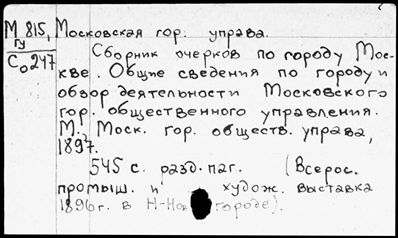 М 815, Московская гор. управа.
гу
Со247
Сборник очерков по городу Мос-
кве. Общие сведения по городу и
обзор деятельности Московского
гор. общественного управления.
М., Моск. гор. обществ. управа,
1897.
545 с. разд. паг. (Всерос.
промыш. и худож. выставка
1896 г. в Н-Нов городе).